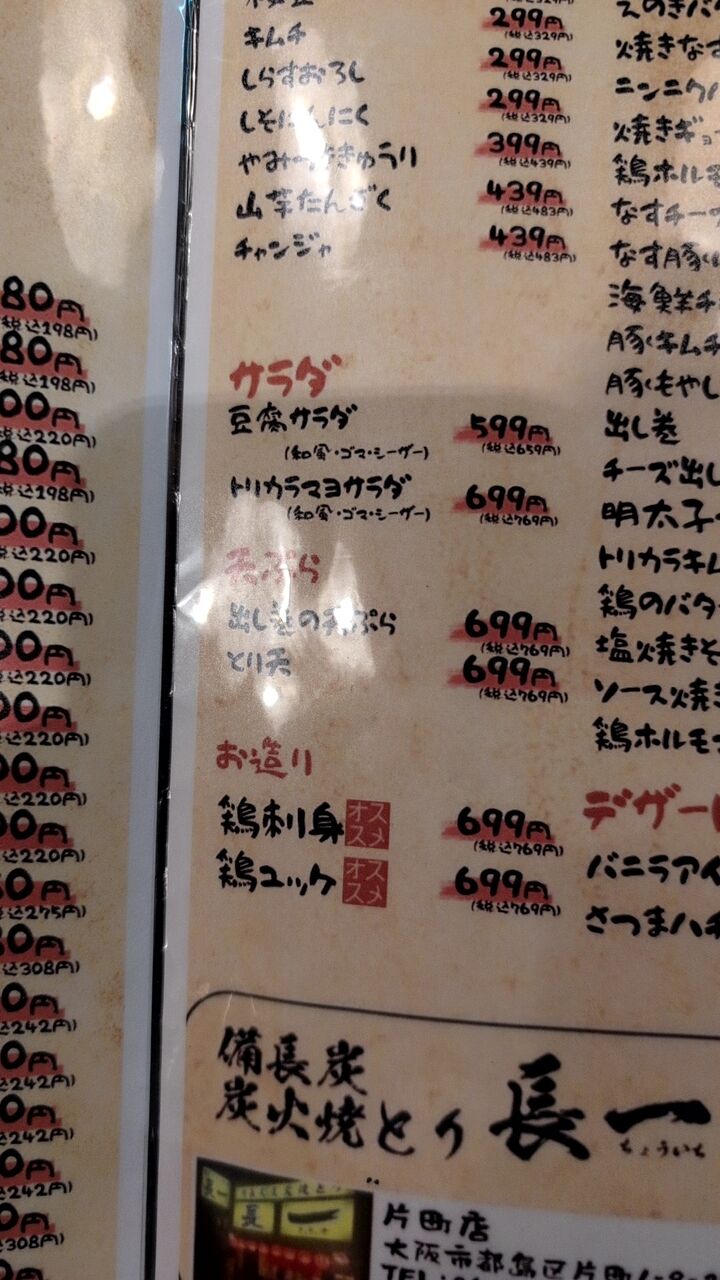 80円
(税込198円)
80円
(税込198円)
00円
(税込220円)
80円
(税込198円)
00円
(税込220円)
00円
(税込220円)
00円
(税込220円)
00円
(税込220円)
00円
(税込220円)
00円
(税込220円)
50円
(税込275円)
80円
(税込308円)
0円
(税込242円)
0円
(税込242円)
0円
(税込242円)
0円
(税込242円)
0円
(税込308円)
キムチ 299円
(税込329円)
しらすおろし 299円
(税込329円)
しそにんにく 299円
(税込329円)
やみつききゅうり 399円
(税込439円)
山芋たんざく 439円
(税込483円)
チャンジャ 439円
(税込483円)
サラダ
豆腐サラダ 599円
(和風・ゴマ・シーザー) (税込659円)
トリカラマヨサラダ 699円
(和風・ゴマ・シーザー) (税込769円)
天ぷら
出し巻の天ぷら 699円
(税込769円)
とり天 699円
(税込769円)
お造り
鶏刺身 オススメ 699円
(税込769円)
鶏ユッケ オススメ 699円
(税込769円)
えのきバ
焼きなす
ニンニク
焼きギョ
鶏ホル
なすチー
なす豚
海鮮チ
豚キムチ
豚もやし
出し巻
チーズ出し
明太子
トリカラキム
鶏のバタ
塩焼きそ
ソース焼き
鶏ホルモ
デザー
バニラアイ
さつまハ
備長炭
炭火焼とり 長一
ちょういち
長一
片町店
大阪市都島区片町
TEL